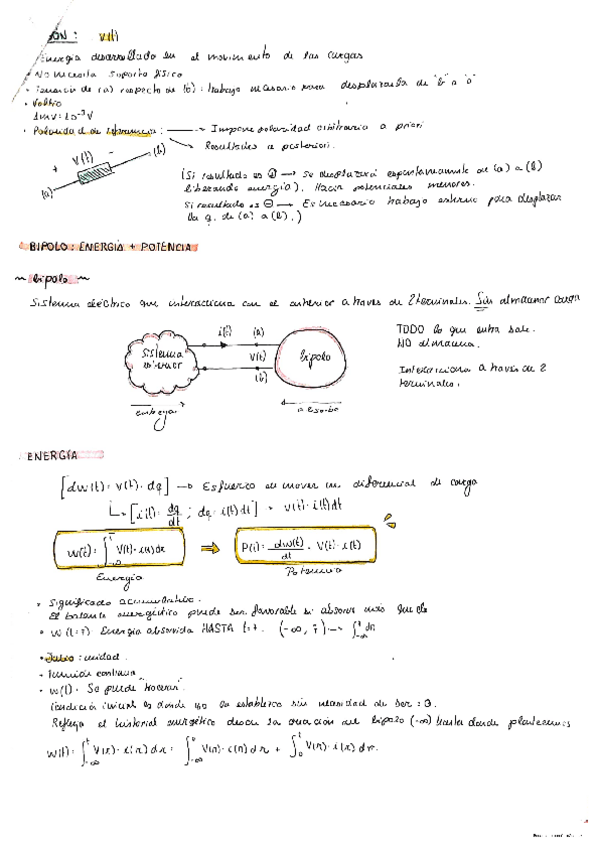 V(t)
Energía desarrollada en el movimiento de las cargas
No necesita soporte físico
Tensión de (a) respecto de (b): trabajo necesario para desplazarla de "b" a "a"
Voltio
1mV = 10⁻³V
Polaridad de referencia: → Impone polaridad arbitraria a priori
→ Resultados a posteriori.
+ V(t) - (b)
(a)
(Si resultado es ⊕ → se desplazará espontáneamente de (a) a (b)
liberando energía). Hacia potenciales menores.
Si resultado es ⊖ → Es necesario trabajo externo para desplazar
la q. de (a) a (b).)
BIPOLO: ENERGÍA + POTENCIA
~ bipolo ~
Sistema eléctrico que interacciona con el exterior a través de 2 terminales. Sin almacenar carga
i(t) (a)
Sistema V(t) bipolo
(b)
entrega absorbe
TODO lo que entra sale.
NO almacena.
Interacciona a través de 2
terminales.
ENERGÍA
[dw(t) = v(t) · dq] → Esfuerzo en mover un diferencial de carga
↳ [i(t) = dq/dt ; dq = i(t)dt] = v(t) · i(t)dt
W(t) = ∫ V(x) · i(x)dx ⇒ P(t) = dw(t)/dt = V(t) · i(t)
Energía Potencia
Significado acumulativo.
El balance energético puede ser favorable si absorve más que
Energía absorvida HASTA
Julio: unidad.
Función continua
w(t). Se puede "trocear".
Condición inicial es donde yo lo establezco sin necesidad de ser = 0.
Refleja el historial energético desde la creación del bipolo (-∞) hasta donde
W(t) = ∫ V(x) · i(x) dx = ∫ V(x) · i(x) dx + ∫ V(x) · i(x) dx.